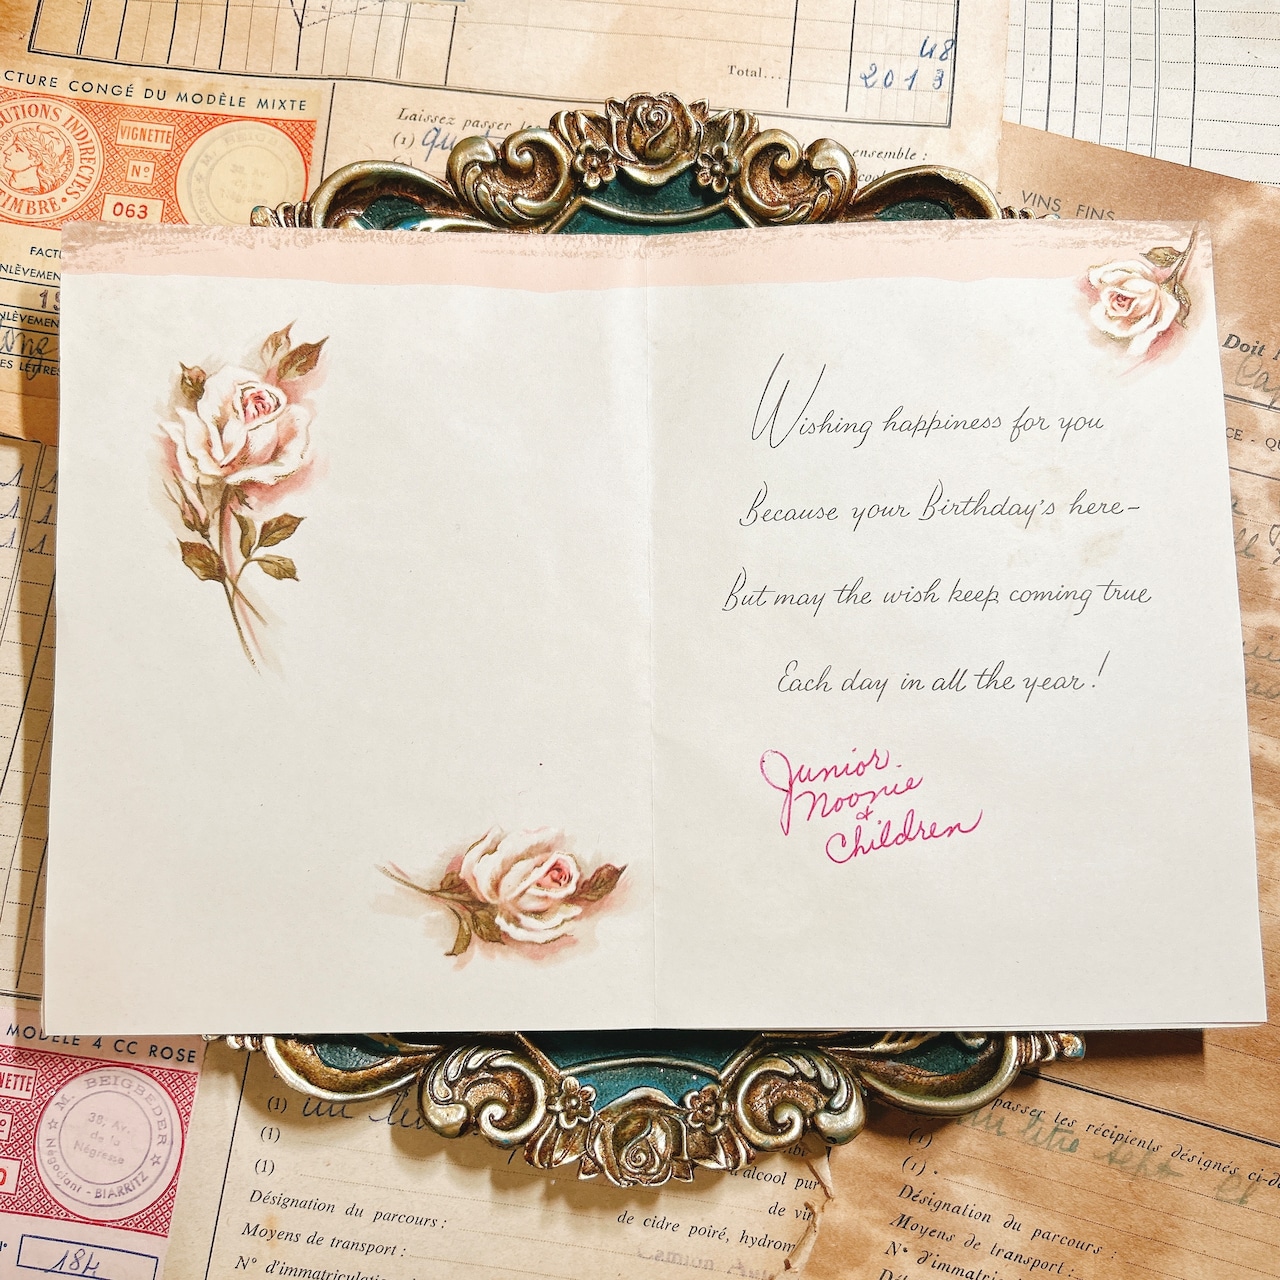 48
Total...
2013
CTURE CONGÉ DU MODÈLE MIXTE
VIGNETTE
N°
063
TIMBRE
Laissez passer les
(1)
ensemble :
VINS FINS
Wishing happiness for you
Because your Birthday's here-
But may the wish keep coming true
Each day in all the year!
Junior.
Noonie
&
Children
Doit
MODÈLE 4 CC ROSE
M. BEIGBEDER
38, Av.
de la
Négresse
Négociant - BIARRITZ
184
(1) un
(1)
(1)
Désignation du parcours :
Moyens de transport :
N° d'immatriculation
alcool pur
de vin
de cidre poiré, hydrom
passer les récipients désignés ci-de
(1)
(1)
Désignation du parcours :
Moyens de transport :
N° d'immatric